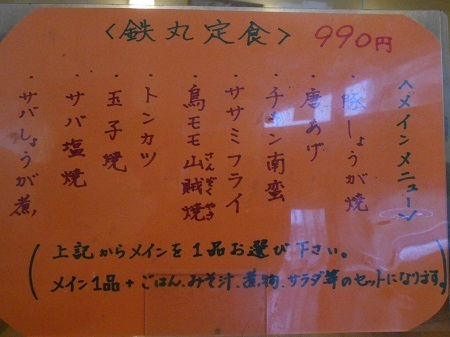 〈鉄丸定食〉 990円
〈メインメニュー〉
・豚しょうが焼
・唐あげ
・チキン南蛮
・ササミフライ
・鳥モモ山賊焼
さんぞくやき
・トンカツ
・玉子焼
・サバ塩焼
・サバしょうが煮
(上記からメインを1品お選び下さい。
メイン1品+ごはん、みそ汁、煮物、サラダ等のセットになります。)